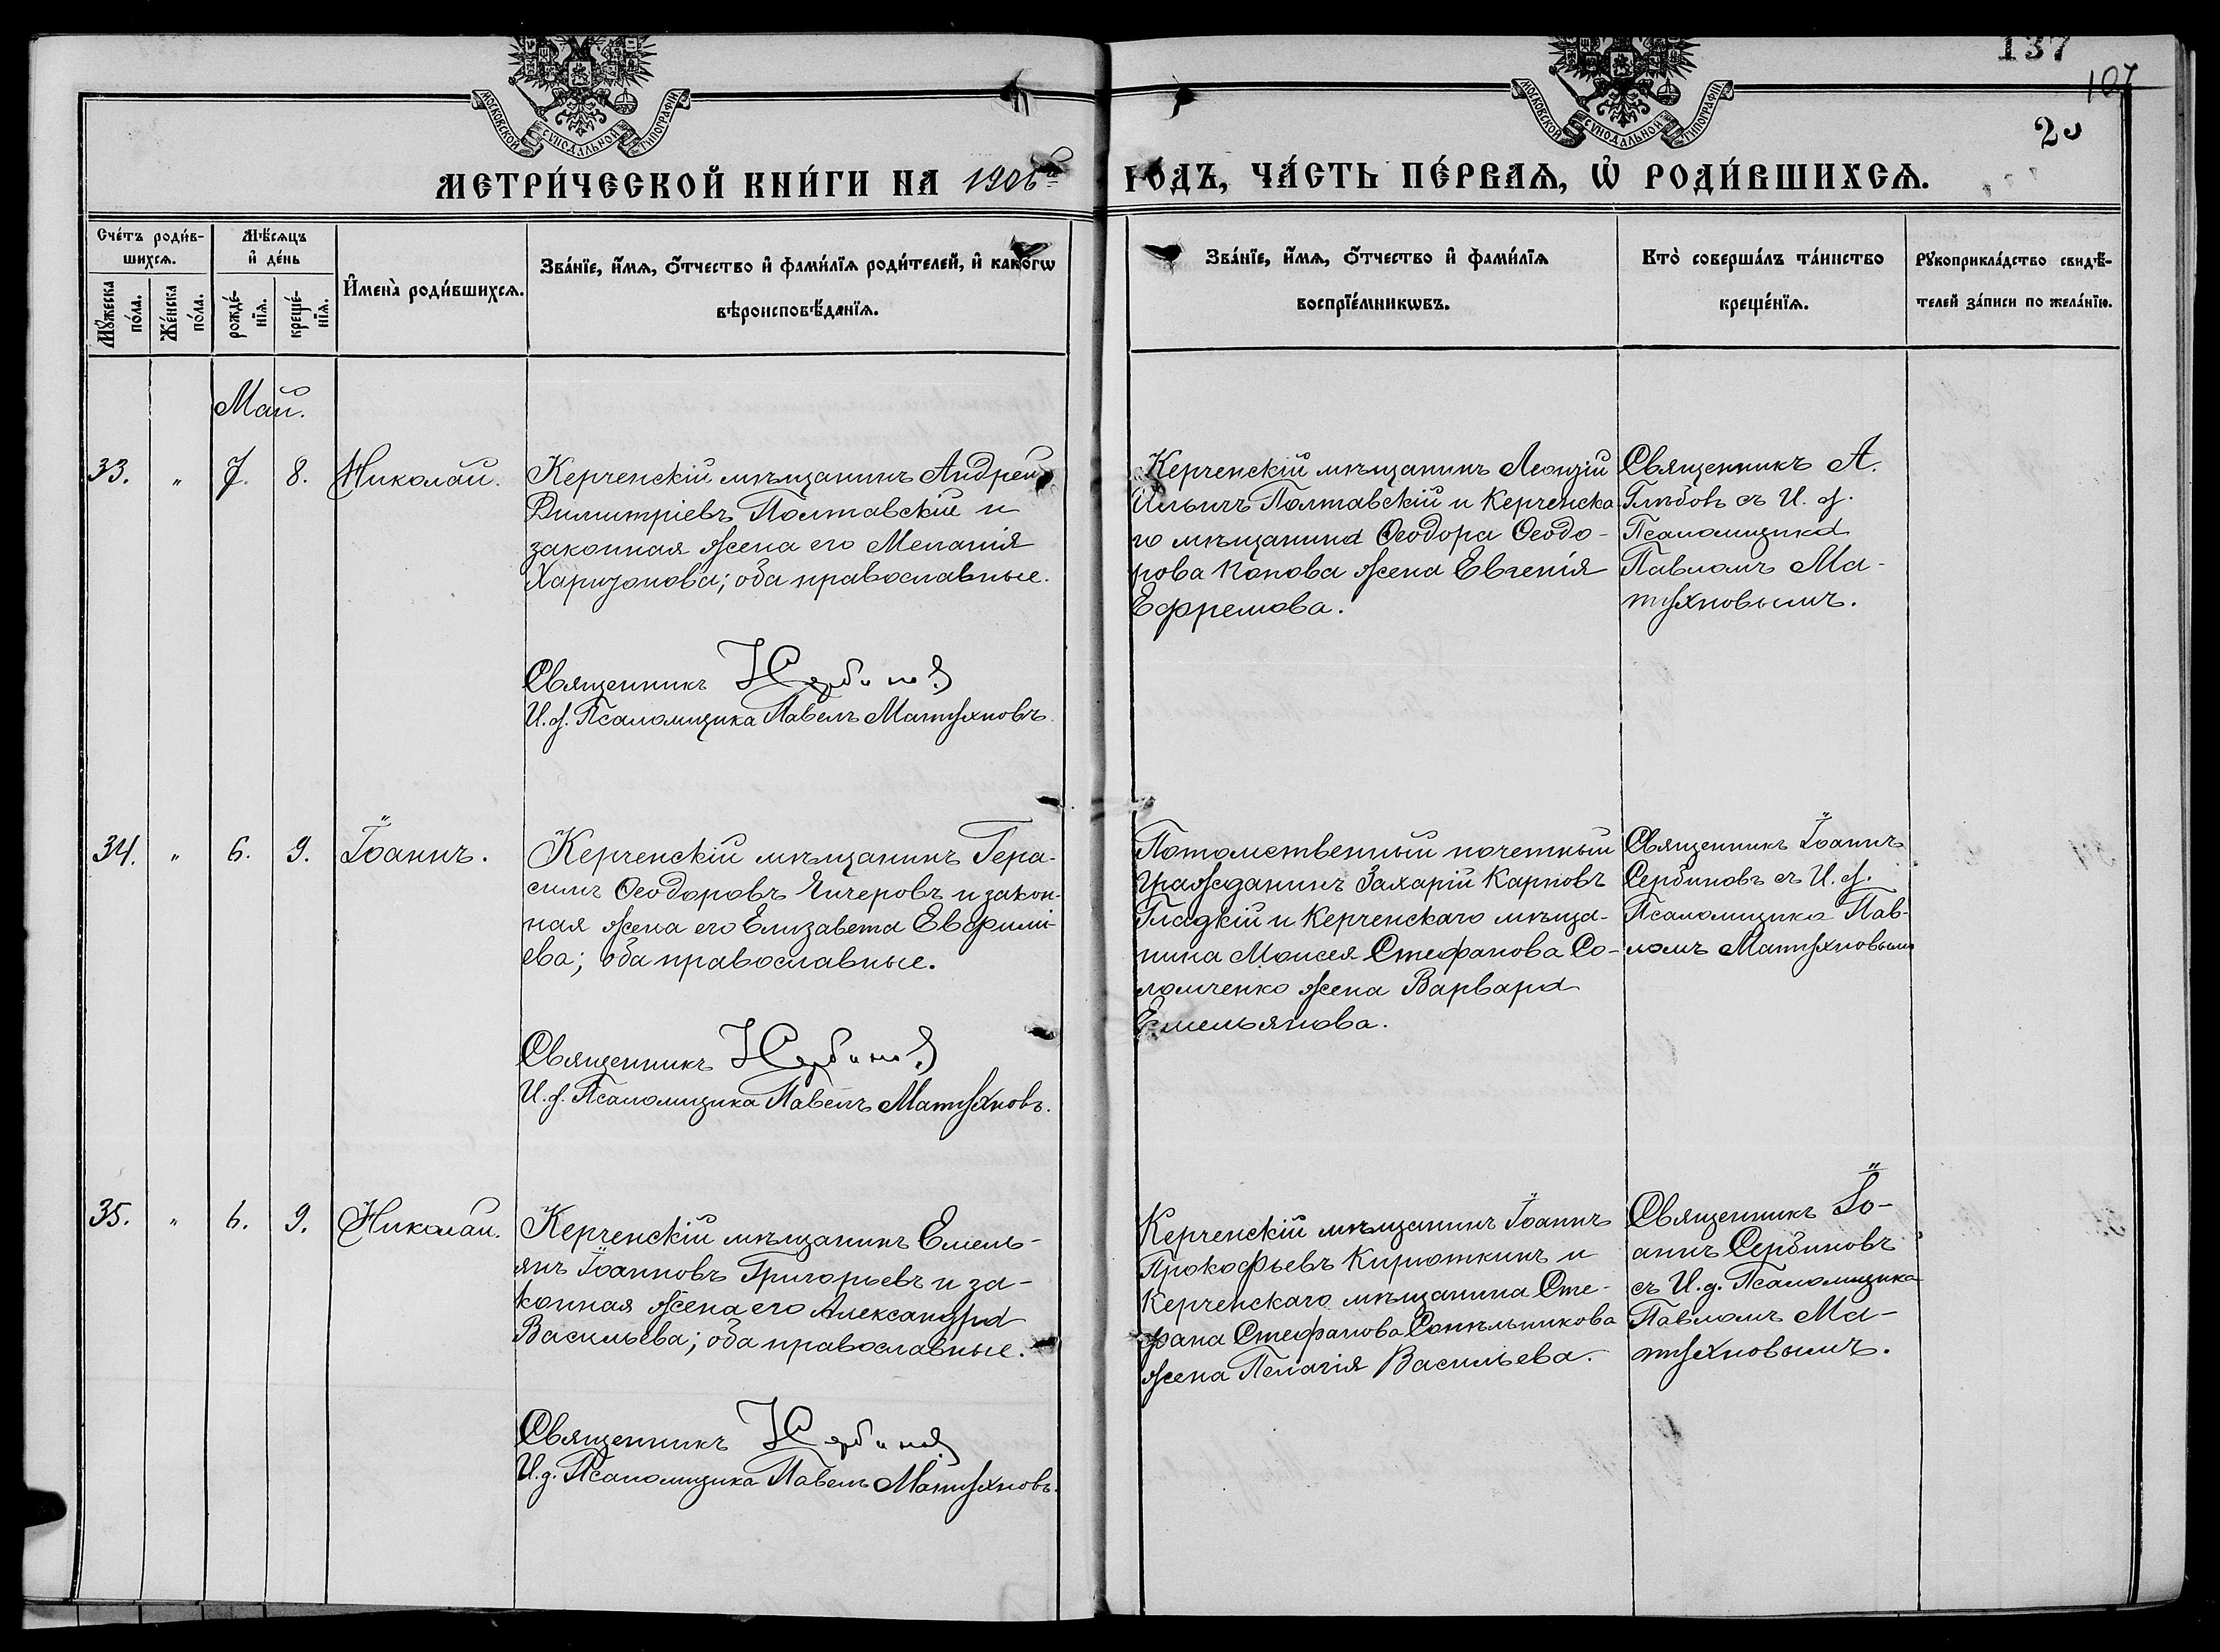 137
107
20
МОСКОВСКОЙ СѴНОДАЛЬНОЙ ТИПОГРАФІИ
МОСКОВСКОЙ СѴНОДАЛЬНОЙ ТИПОГРАФІИ
МЕТРИ́ЧЕСКОЙ КНИ́ГИ НА 1906й ГО́ДЪ, ЧА́СТЬ ПЕ́РВАѦ, Ѡ҆ РОДИ́ВШИХСѦ.
Сче́тъ роди́в-
шихсѧ.
Мꙋ́жеска по́ла.
Же́нска по́ла.
Мѣ́сѧцъ
и҆ де́нь
рожде́-
нїѧ.
креще́-
нїѧ.
И҆мена̀ роди́вшихсѧ.
Зва́нїе, и҆́мѧ, ѻ҆́тчество и҆ фами́лїѧ роди́телей, и҆ како́гѡ
вѣроисповѣ́данїѧ.
Зва́нїе, и҆́мѧ, ѻ҆́тчество и҆ фами́лїѧ
воспрїе́мникѡвъ.
Кто̀ соверша́лъ та́инство
креще́нїѧ.
Рꙋкоприкла́дство свидѣ́-
телей за́писи по жела́нїю.
Май.
33. " 7. 8. Николай.
Керченскій мѣщанинъ Андрей
Димитріевъ Полтавскій и
законная жена его Меланія
Харитонова; оба православные.
Священникъ Сербиновъ
И. д. Псаломщика Павелъ Матухновъ.
Керченскій мѣщанинъ Леонтій
Ильичъ Полтавскій и Керченска-
го мѣщанина Ѳеодора Ѳеодо-
рова Попова жена Евгенія
Ефремова.
Священникъ А.
Глѣбовъ съ И. д.
Псаломщика
Павломъ Ма-
тухновымъ.
34. " 6. 9. Іоаннъ.
Керченскій мѣщанинъ Гера-
симъ Ѳеодоровъ Чичеровъ и закон-
ная жена его Елизавета Евфимі-
ева; оба православные.
Священникъ Сербиновъ
И. д. Псаломщика Павелъ Матухновъ.
Потомственный почетный
Гражданинъ Захарій Карповъ
Гладкій и Керченскаго мѣща-
нина Моисея Стефанова Со-
ломченко жена Варвара
Емельянова.
Священникъ Іоаннъ
Сербиновъ съ И. д.
Псаломщика Пав-
ломъ Матухновымъ
35. " 6. 9. Николай.
Керченскій мѣщанинъ Емель-
янъ Іоанновъ Григорьевъ и за-
конная жена его Александра
Васильева; оба православные.
Священникъ Сербиновъ
И. д. Псаломщика Павелъ Матухновъ.
Керченскій мѣщанинъ Іоаннъ
Прокофьевъ Кирюткинъ и
Керченскаго мѣщанина Сте-
фана Стефанова Сотѣльникова
жена Пелагія Васильева.
Священникъ Іо-
аннъ Сербиновъ
съ И. д. Псаломщика
Павломъ Ма-
тухновымъ.